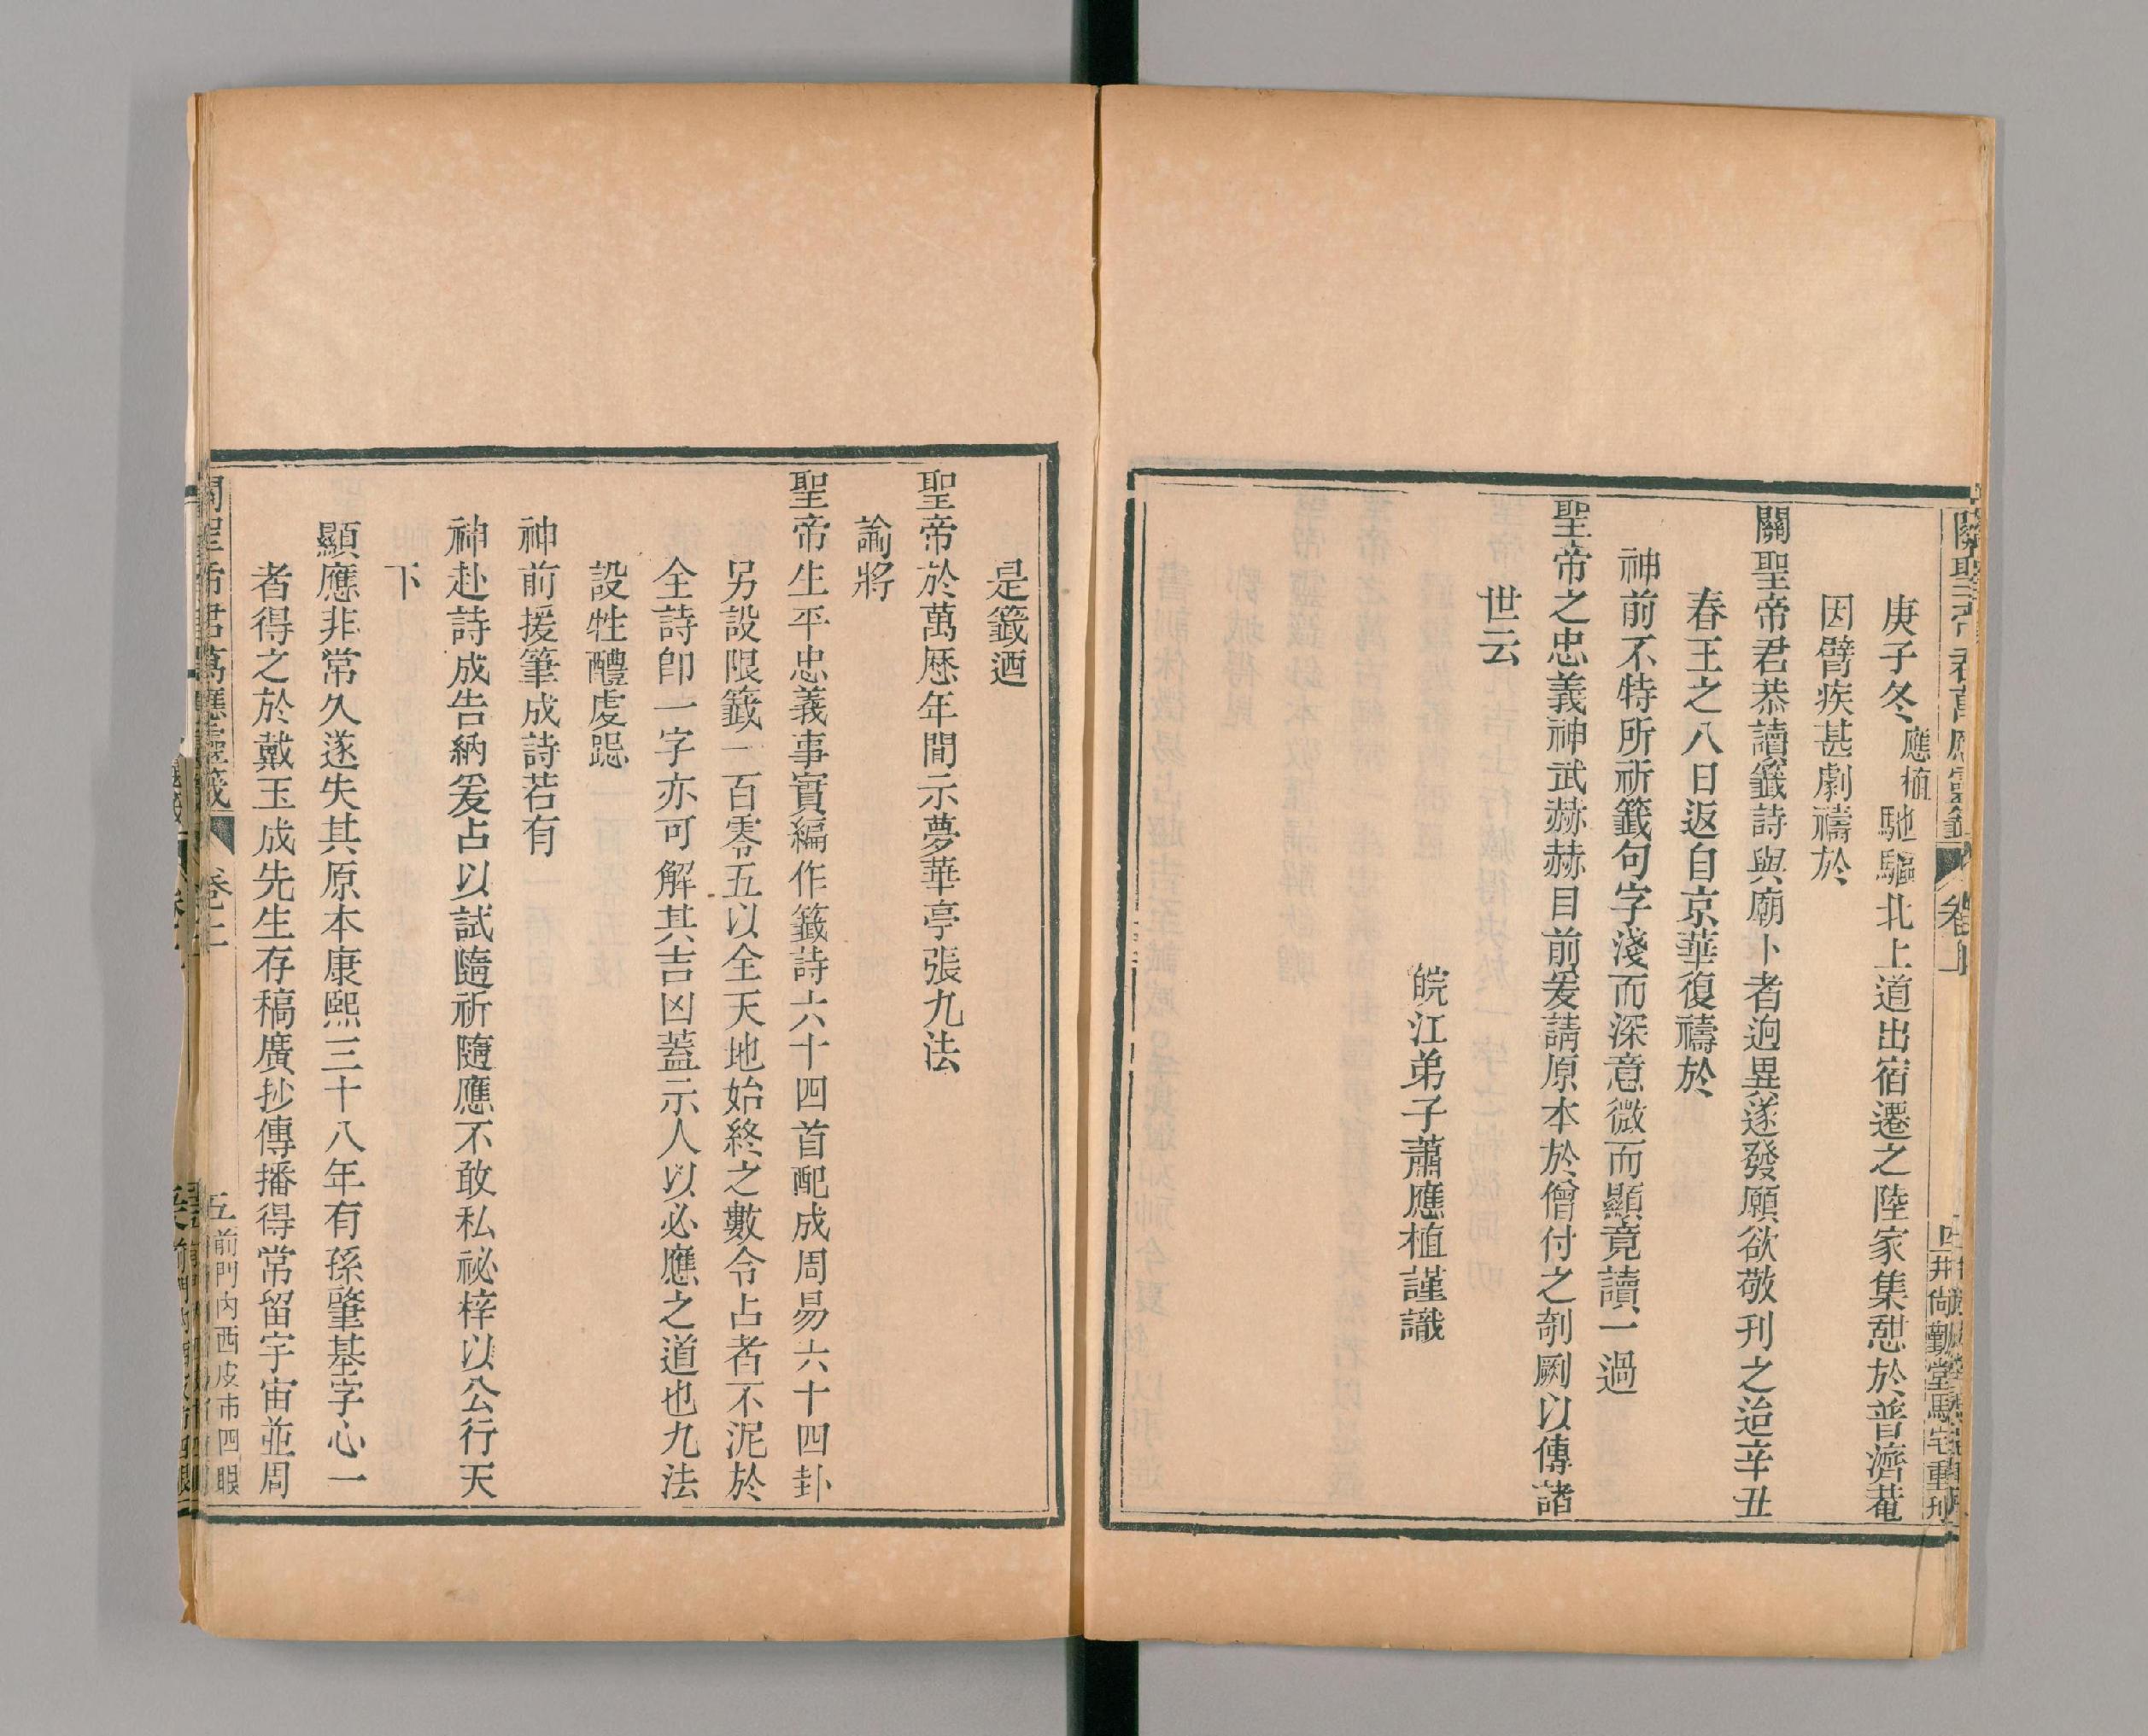 庚子冬應植馳驅北上道出宿遷之陸家集憩於普濟菴
因臂疾甚劇禱於
關聖帝君恭讀籤詩與廟卜者逈異遂發願欲敬刊之迨辛丑
春王之八日返自京華復禱於
神前不特所祈籤句字淺而深意微而顯竟讀一過
聖帝之忠義神武赫赫目前爰請原本於僧付之剞劂以傳諸
世云
皖江弟子蕭應植謹識
是籤迺
聖帝於萬歷年間示夢華亭張九法
諭將
聖帝生平忠義事實編作籤詩六十四首配成周易六十四卦
另設限籤一百零五以全天地始終之數令占者不泥於
全詩卽一字亦可解其吉凶蓋示人以必應之道也九法
設牲醴虔跽
神前援筆成詩若有
神赴詩成告納爰占以試隨祈隨應不敢私祕梓以公行天
下
顯應非常久遂失其原本康熙三十八年有孫肇基字心一
者得之於戴玉成先生存稿廣抄傳播得常留宇宙並周
關聖帝君萬應靈籤 卷上 五 前門內西皮市四眼